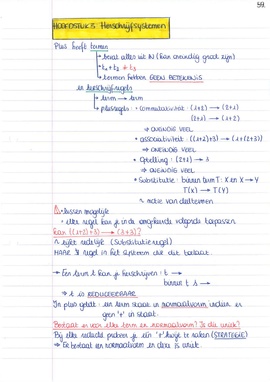 59.
HOOFDSTUK 3 Herschrijfsystemen
Plus heeft termen
→ bevat alles uit ℕ (kan oneindig groot zijn)
→ t₁ + t₂ ≠ t₃
→ termen hebben GEEN BETEKENIS
en herschrijfregels
→ term → term
→ plusregels: • commutativiteit: (1+2) → (2+1)
(2+1) → (1+2)
⇒ ONEINDIG VEEL
• associativiteit: ((1+2)+3) → (1+(2+3))
⇒ ONEINDIG VEEL
• optelling: (2+1) → 3
⇒ ONEINDIG VEEL
• Substitutie: binnen term T: X en X → Y
T(X) → T(Y)
↳ notie van deeltermen
• lussen mogelijk
• elke regel kan je in de omgekeerde volgorde toepassen
Kan ((1+2)+3) → (3+3)?
↳ lijkt redelijk (Substitutieregel)
MAAR regel in het systeem die dit toelaat.
→ Een term t kan je herschrijven: t →
binnen t →
⇒ t is REDUCEERBAAR
In plus geldt: een term staat in NORMAALVORM indien er
geen '+' in staat.
Bestaat er voor elke term een normaalvorm? Is die uniek?
Bij elke reductie probeer je een '+' kwijt te raken (STRATEGIE)
⇒ Er bestaat een normaalvorm en deze is uniek.